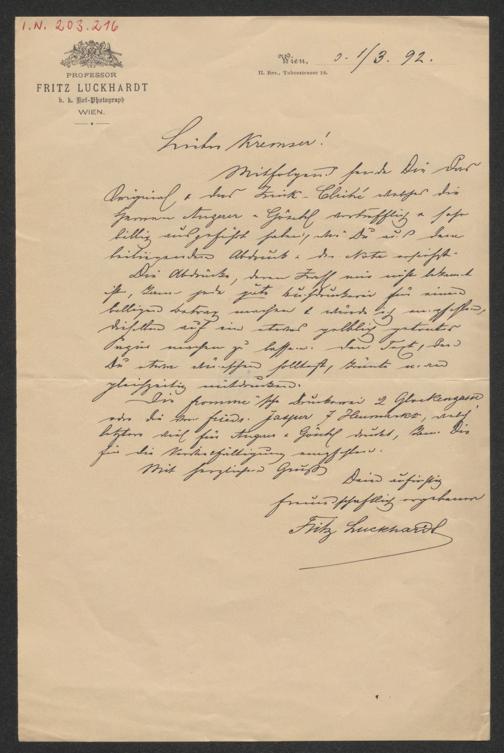 I.N. 203.216
PROFESSOR
FRITZ LUCKHARDT
k. k. Hof-Photograph
WIEN.
Wien, d. 1/3. 92.
II. Bez., Taborstrasse 18.
Lieber Kremser!
Mitfolgend sende Dir das
Original & das Zink-Cliché welches die
Herren Angerer & Göschl vortrefflich & sehr
billig ausgeführt haben, wie Du aus dem
beiliegenden Abdruck & der Nota ersiehst.
Die Abdrücke, deren Zahl mir nicht bekannt
ist, kann jede gute Buchdruckerei für einen
billigen Betrag machen & würde ich
dieselben auf ein etwas gelblich getöntes
Papier machen zu lassen. Den Text, den
Du etwa wünschen solltest, könnte man
gleichzeitig mitdrucken.
Die Fromme'sche Druckerei 2 Glockengasse
oder die von Fried. Jasper 7 Heumarkt,
letztere viel für Angerer & Göschl druckt, kann Dir
für die Vervielfältigung empfehlen.
Mit herzlichem Gruß
Dein aufrichtig
freundschaftlich ergebener
Fritz Luckhardt